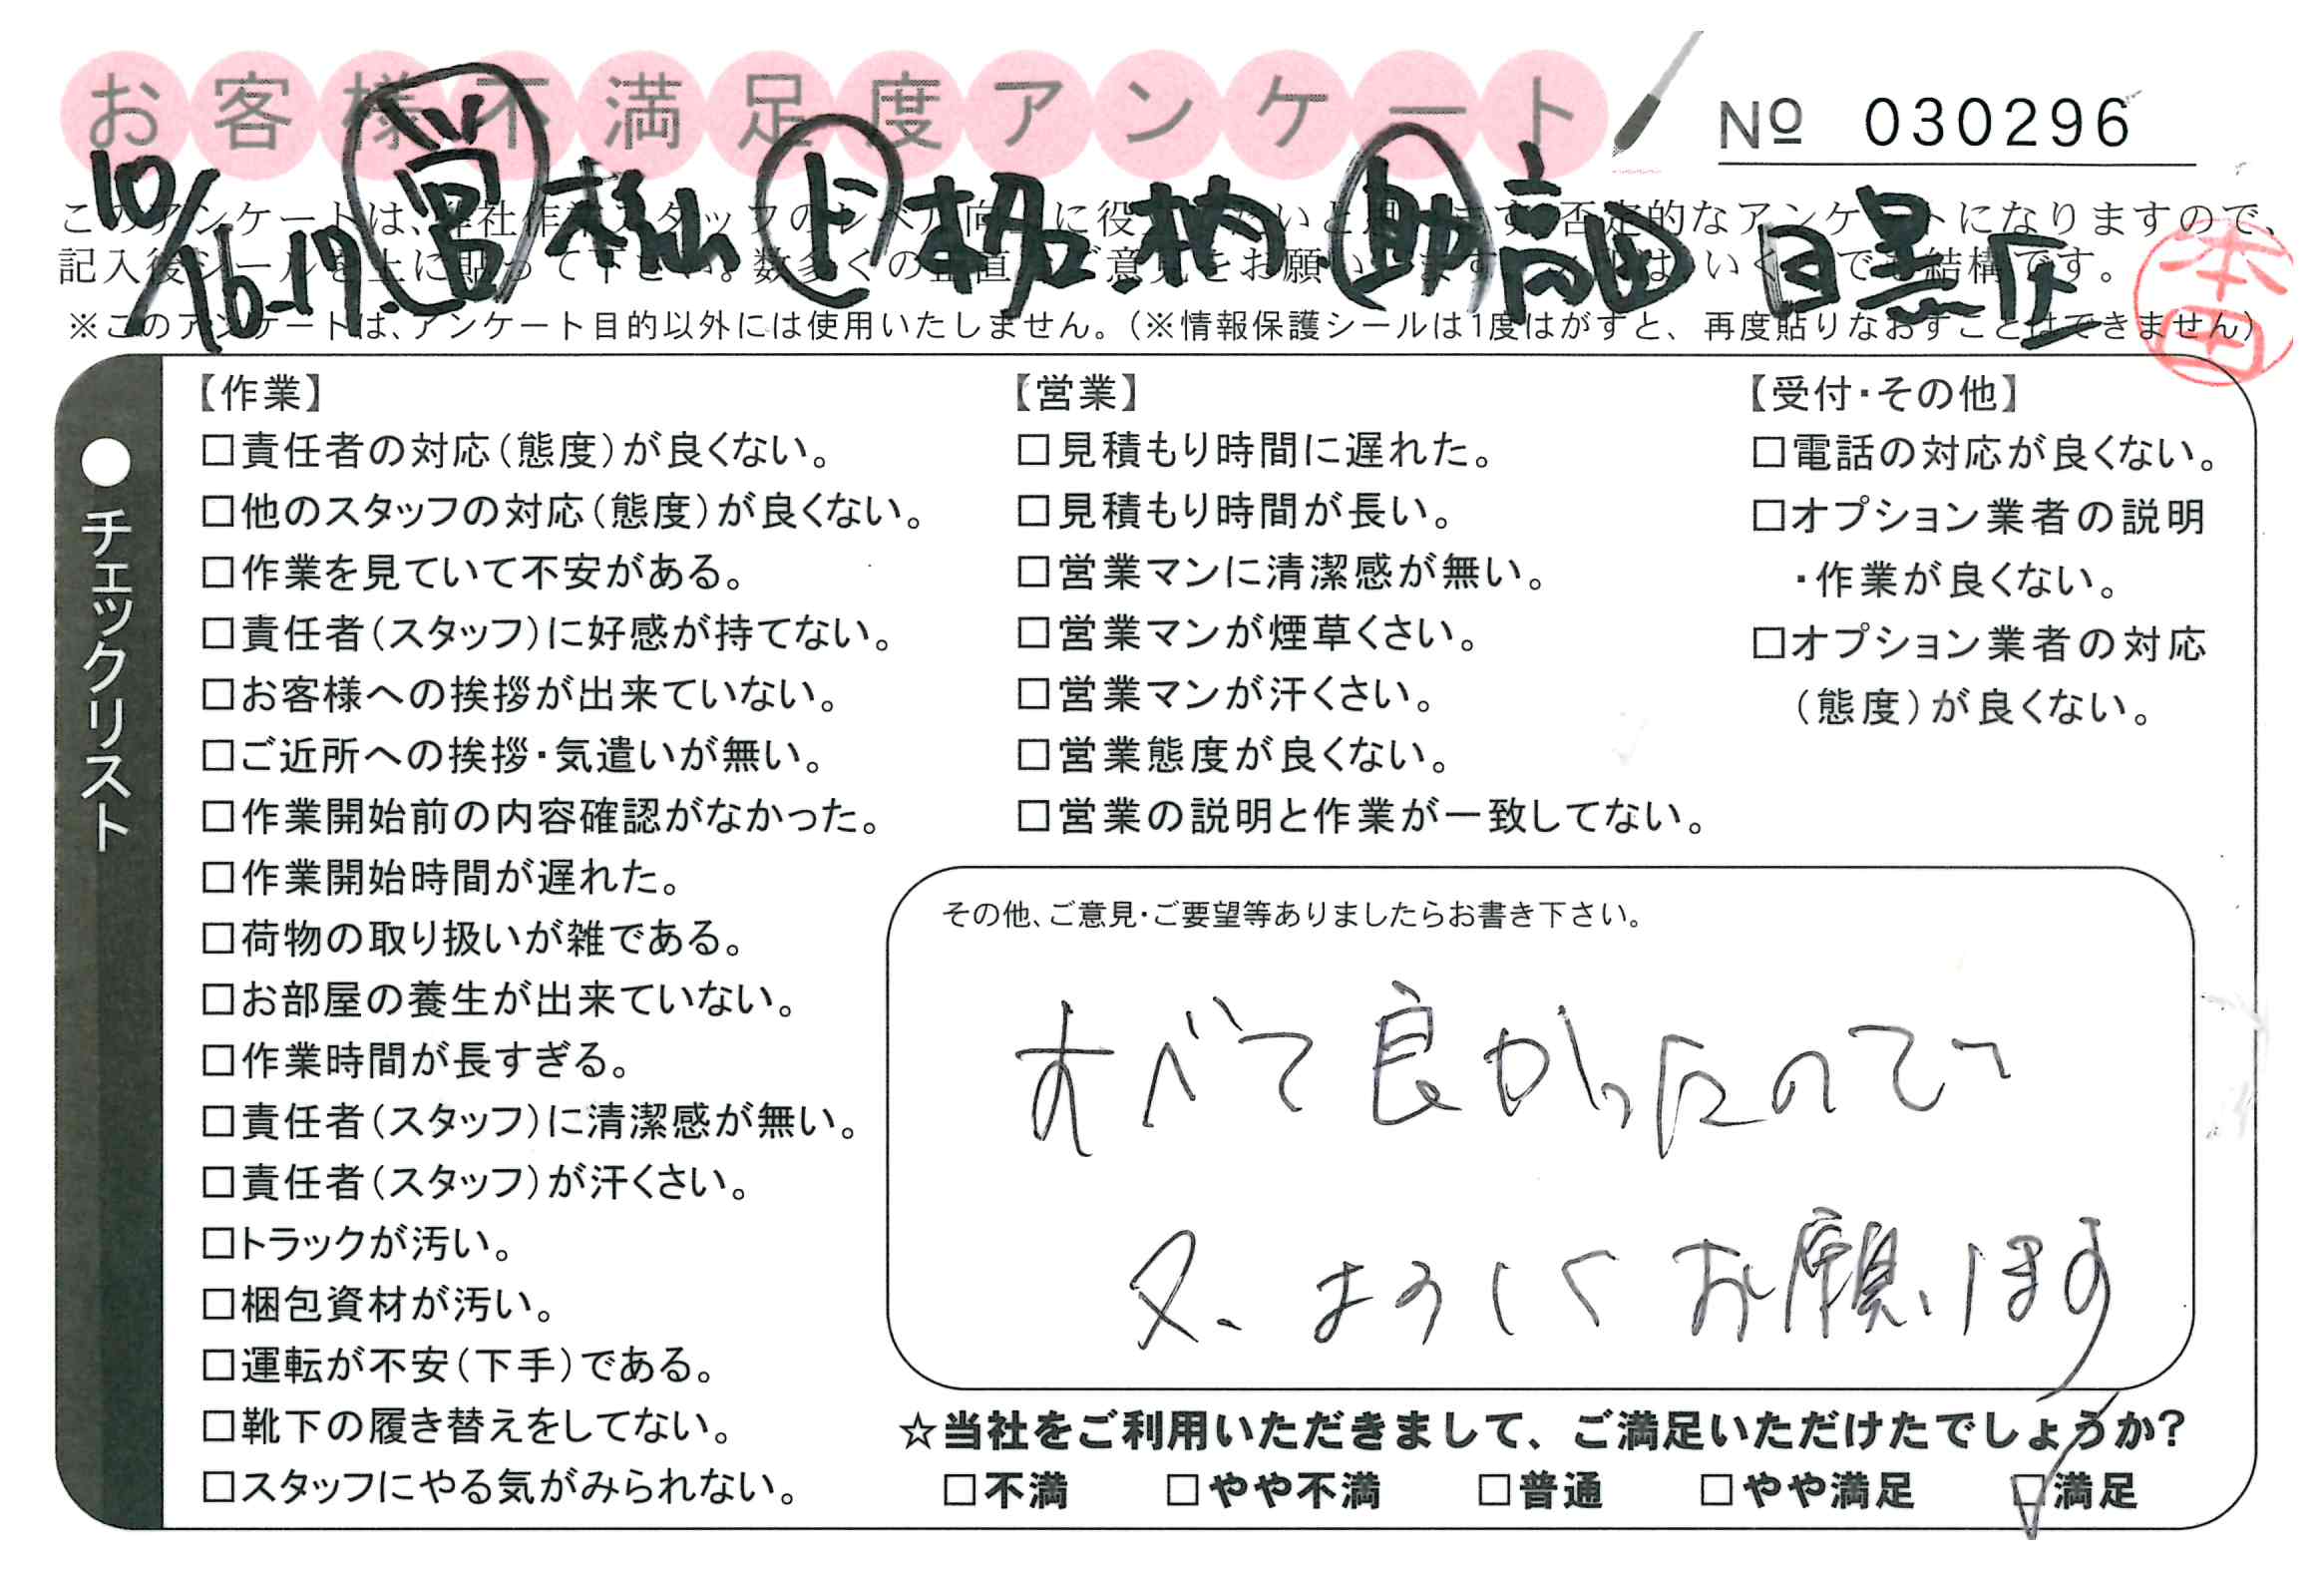 お客様不満足度アンケート
№ 030296
10/16-17 営 杉山 上 招.柄 助 高田 目黒区
本田
このアンケートは、弊社作業スタッフのレベル向上に役立てたいと思います。否定的なアンケートになりますので、
記入後シールを上に貼って下さい。数多くの正直なご意見をお願いします。
※このアンケートは、アンケート目的以外には使用いたしません。(※情報保護シールは1度はがすと、再度貼りなおすことはできません)
●チェックリスト
【作業】
□責任者の対応(態度)が良くない。
□他のスタッフの対応(態度)が良くない。
□作業を見ていて不安がある。
□責任者(スタッフ)に好感が持てない。
□お客様への挨拶が出来ていない。
□ご近所への挨拶・気遣いが無い。
□作業開始前の内容確認がなかった。
□作業開始時間が遅れた。
□荷物の取り扱いが雑である。
□お部屋の養生が出来ていない。
□作業時間が長すぎる。
□責任者(スタッフ)に清潔感が無い。
□責任者(スタッフ)が汗くさい。
□トラックが汚い。
□梱包資材が汚い。
□運転が不安(下手)である。
□靴下の履き替えをしてない。
□スタッフにやる気がみられない。
【営業】
□見積もり時間に遅れた。
□見積もり時間が長い。
□営業マンに清潔感が無い。
□営業マンが煙草くさい。
□営業マンが汗くさい。
□営業態度が良くない。
□営業の説明と作業が一致してない。
【受付・その他】
□電話の対応が良くない。
□オプション業者の説明
・作業が良くない。
□オプション業者の対応
(態度)が良くない。
その他、ご意見・ご要望等ありましたらお書き下さい。
すべて良かったので
又、よろしくお願いします
☆当社をご利用いただきまして、ご満足いただけたでしょうか?
□不満 □やや不満 □普通 □やや満足 ☑満足